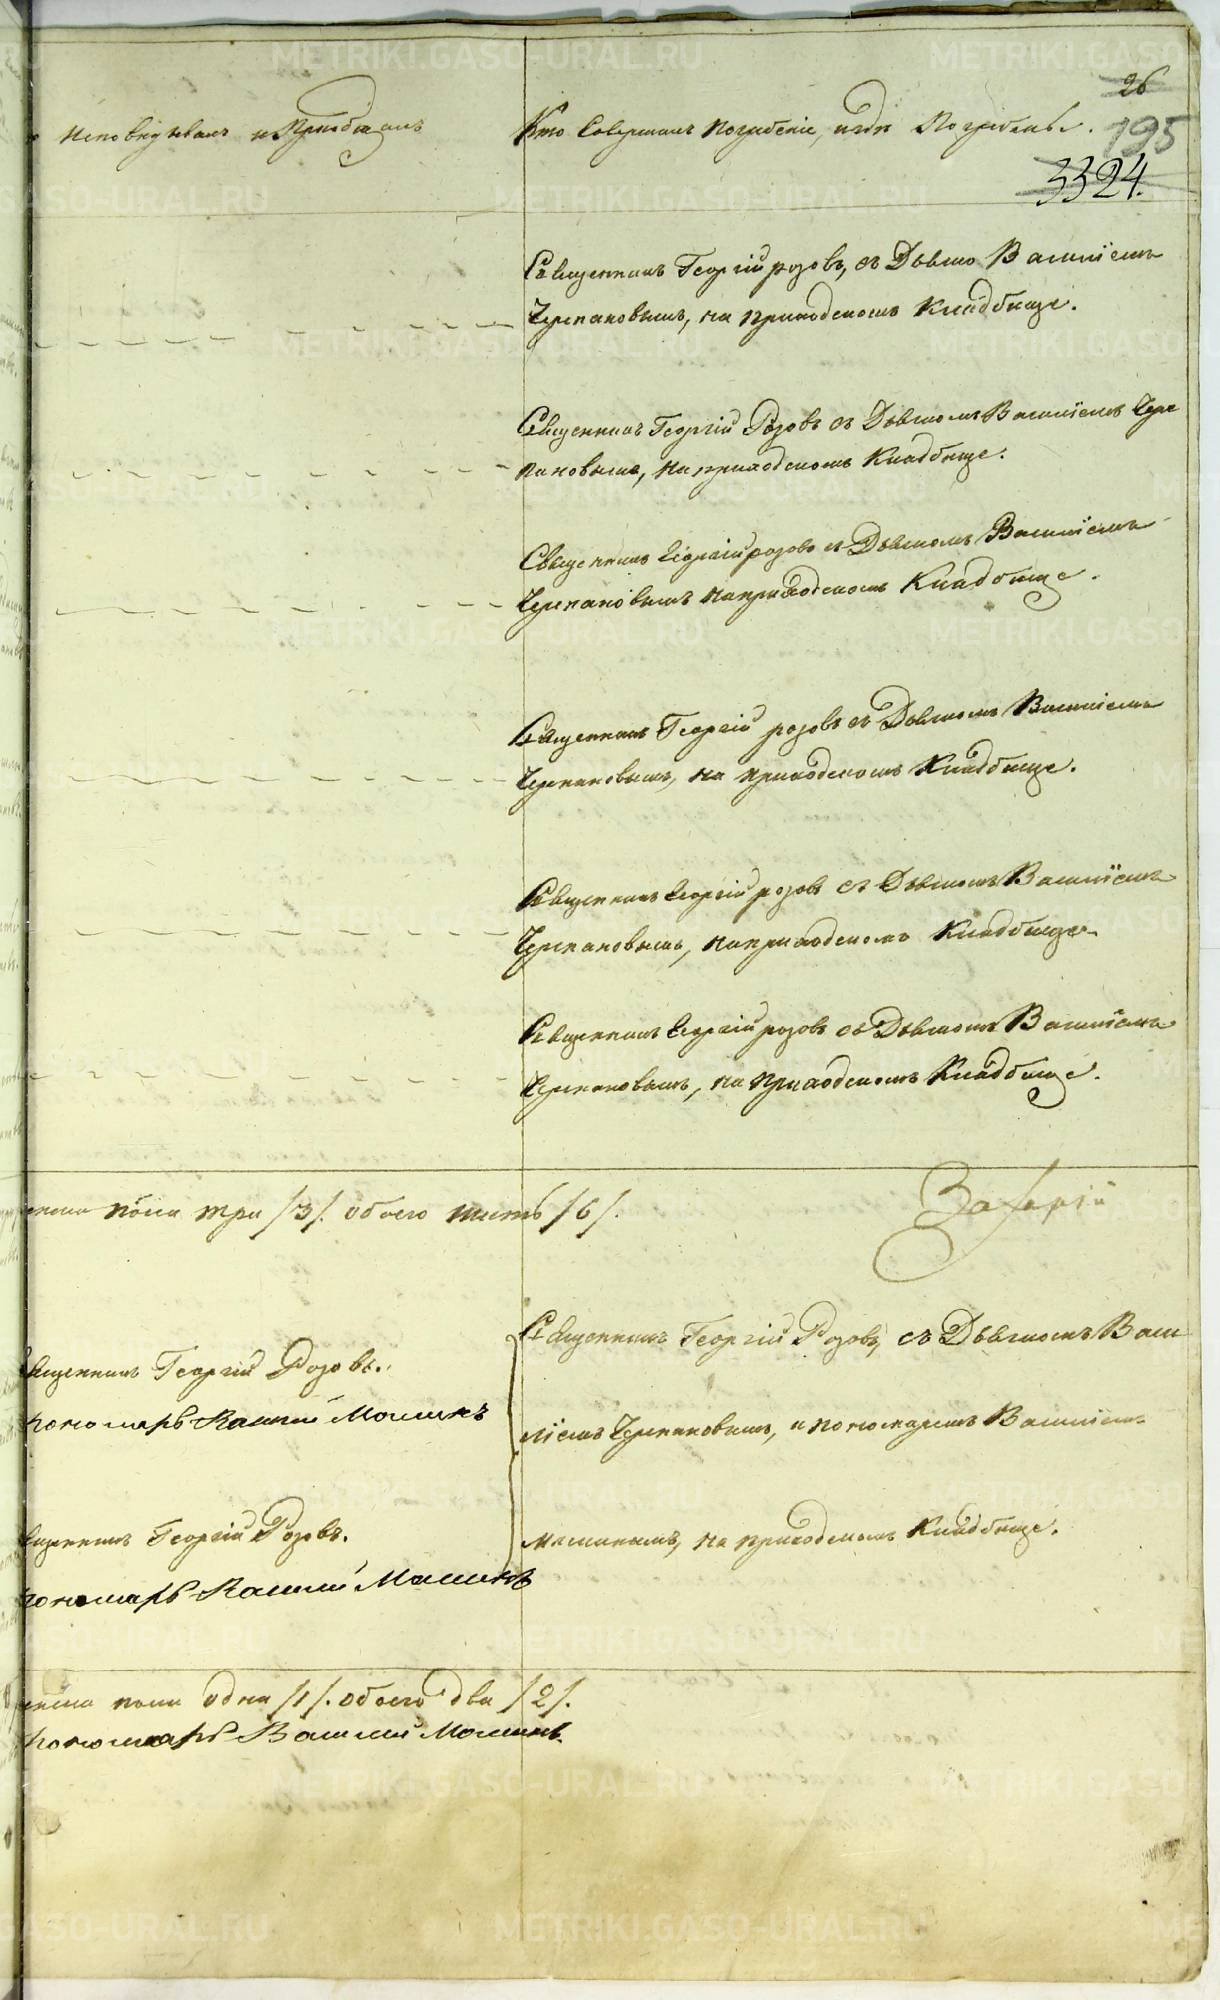 26
Исповедывалъ и Приобщалъ
Кто Совершалъ Погребеніе, и гдѣ Погребены.
195
3324.
Священникъ Георгій розовъ, съ Дьячко Василіемъ
Черепановымъ, на приходскомъ Кладбище.
Священникъ Георгій Розовъ съ Дьячкомъ Василіемъ Чере
пановымъ, на приходскомъ Кладбище.
Священникъ Георгій розовъ съ Дьячкомъ Василіемъ
Черепановымъ на приходскомъ Кладбище.
Священникъ Георгій розовъ съ Дьячкомъ Василіемъ
Черепановымъ, на приходскомъ Кладбище.
Священникъ Георгій розовъ съ Дьячкомъ Василіемъ
Черепановымъ, на приходскомъ Кладбище.
Священникъ Георгій розовъ съ Дьячкомъ Василіемъ
Черепановымъ, на приходскомъ Кладбище.
пола три /3/. обоего шесть /6/.
Священникъ Георгій Розовъ, съ Дьячкомъ Васи
ященникъ Георгій Розовъ.
пономарь Василій Мосинъ
ліемъ Черепановымъ, и пономаремъ Василіемъ
ященникъ Георгій Розовъ.
Мосинымъ, на приходскомъ Кладбище.
пономарь Василій Мосинъ
пола одна /1/. обоего два /2/.
пономарь Василій Мосинъ.
METRIKI.GASO-URAL.RU